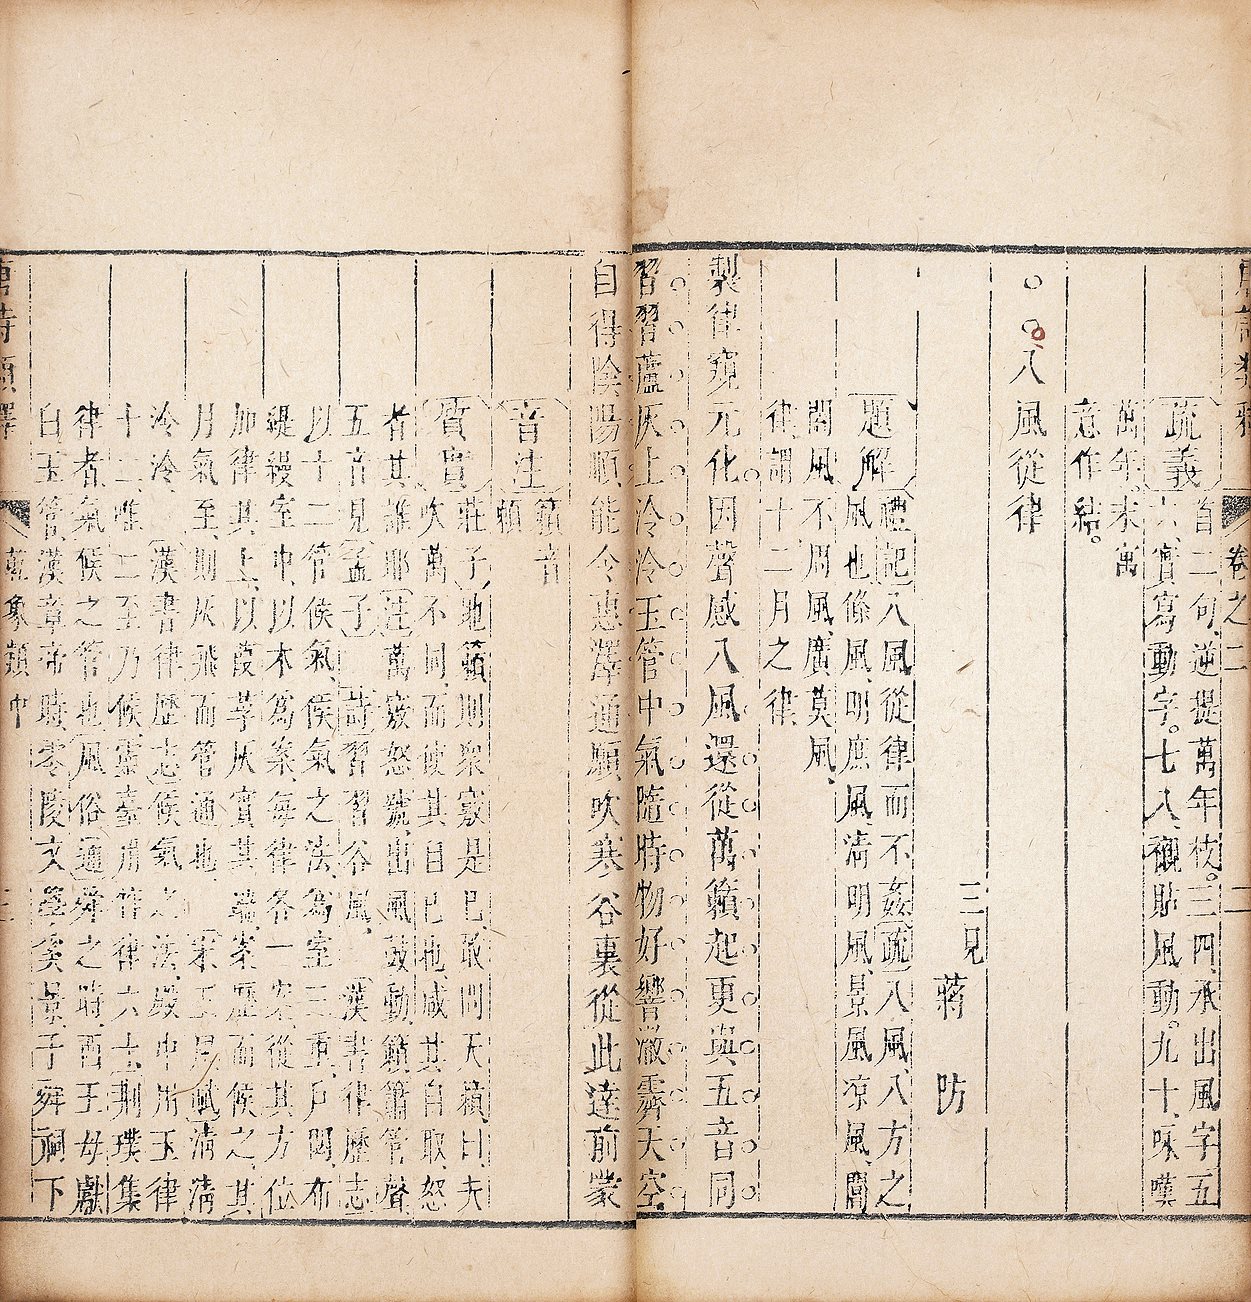 唐詩類釋 卷之二 二
疏義 首二句、逆提萬年枝。三四、承出風字五
六、實寫動字。七八、襯貼風動。九十、咏嘆
萬年、末寓
意作結。
八風從律
三見 蔣 防
題解 禮記八風從律而不姦疏八風、八方之
風也條風、明庶風、清明風、景風涼風、閶
闔風不周風、廣莫風、
律、謂十二月之律、
製律窺元化因聲感八風還從萬籟起更與五音同
習習蘆灰上泠泠玉管中氣隨時物好響徹霽天空
自得陰陽順能令惠澤通願吹寒谷裏從此達前蒙
音注 籟音
賴
質實 莊子、地籟則衆竅是已、敢問天籟、曰、夫
吹萬不同而使其自已也、咸其自取、怒
者其誰耶注萬竅怒號、出風鼓動、籟簫管聲
五音見孟子 詩習習谷風、 漢書律歷志
以十二管候氣、候氣之法、爲室三重、戶閉、布
緹縵室中、以木爲案每律各一案、從其方位
加律其上、以葭莩灰實其端、案歷而候之、其
月氣至、則灰飛而管通也、 宋玉風賦清清
泠泠、 漢書律歷志候氣之法、殿中用玉律
十二、惟二至乃候、靈臺用竹律六十荆璞集
律者、氣候之管也風俗通舜之時、西王母獻
白玉管、漢章帝時零陵文學奚景、于舜祠下
唐詩類釋 乾象類中 三